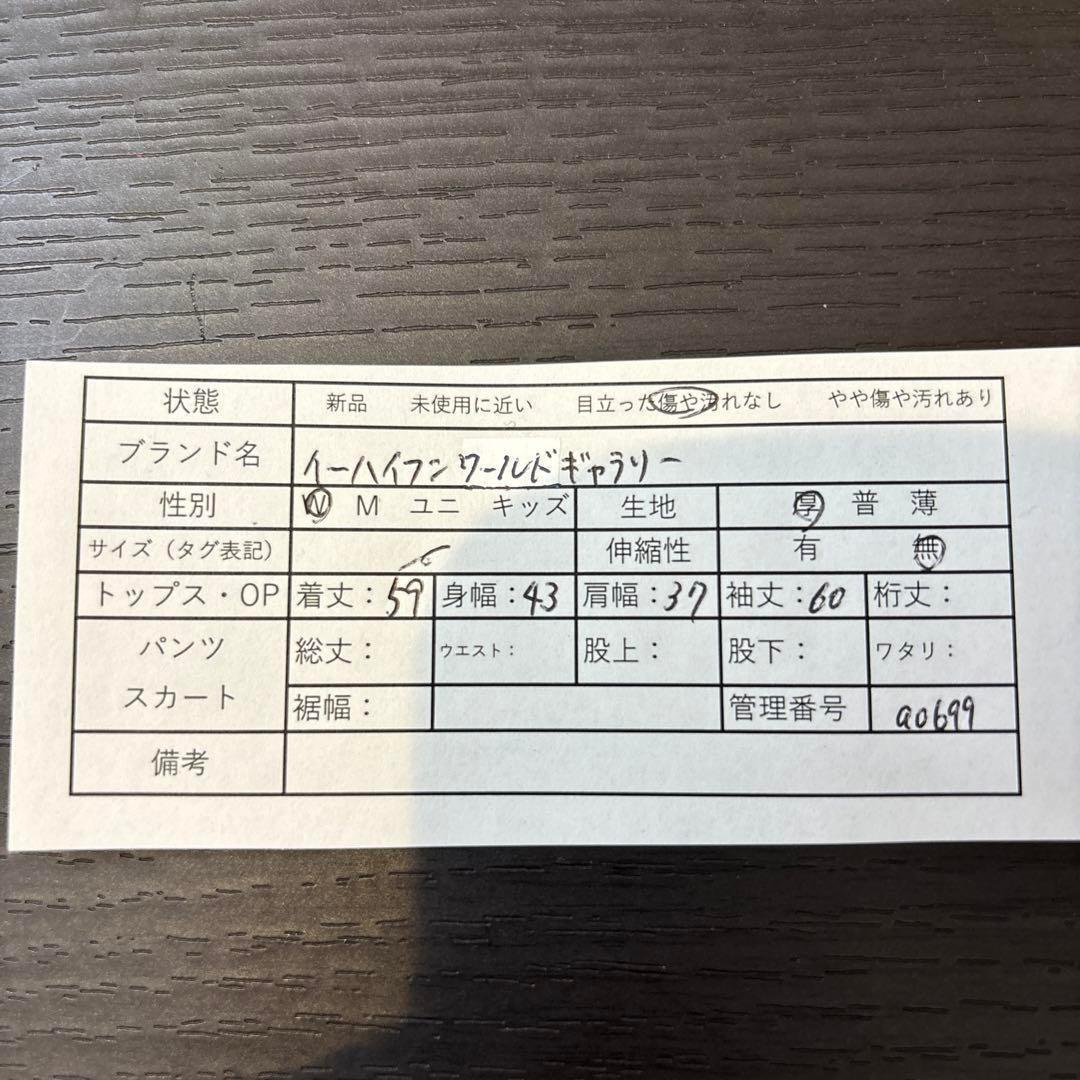 状態 新品 未使用に近い 目立った傷や汚れなし やや傷や汚れあり
ブランド名 イーハイフンワールドギャラリー
性別 W M ユニ キッズ 生地 厚 普 薄
サイズ（タグ表記） 伸縮性 有 無
トップス・OP 着丈：59 身幅：43 肩幅：37 袖丈：60 裄丈：
パンツ 総丈： ウエスト： 股上： 股下： ワタリ：
スカート 裾幅： 管理番号 a0699
備考